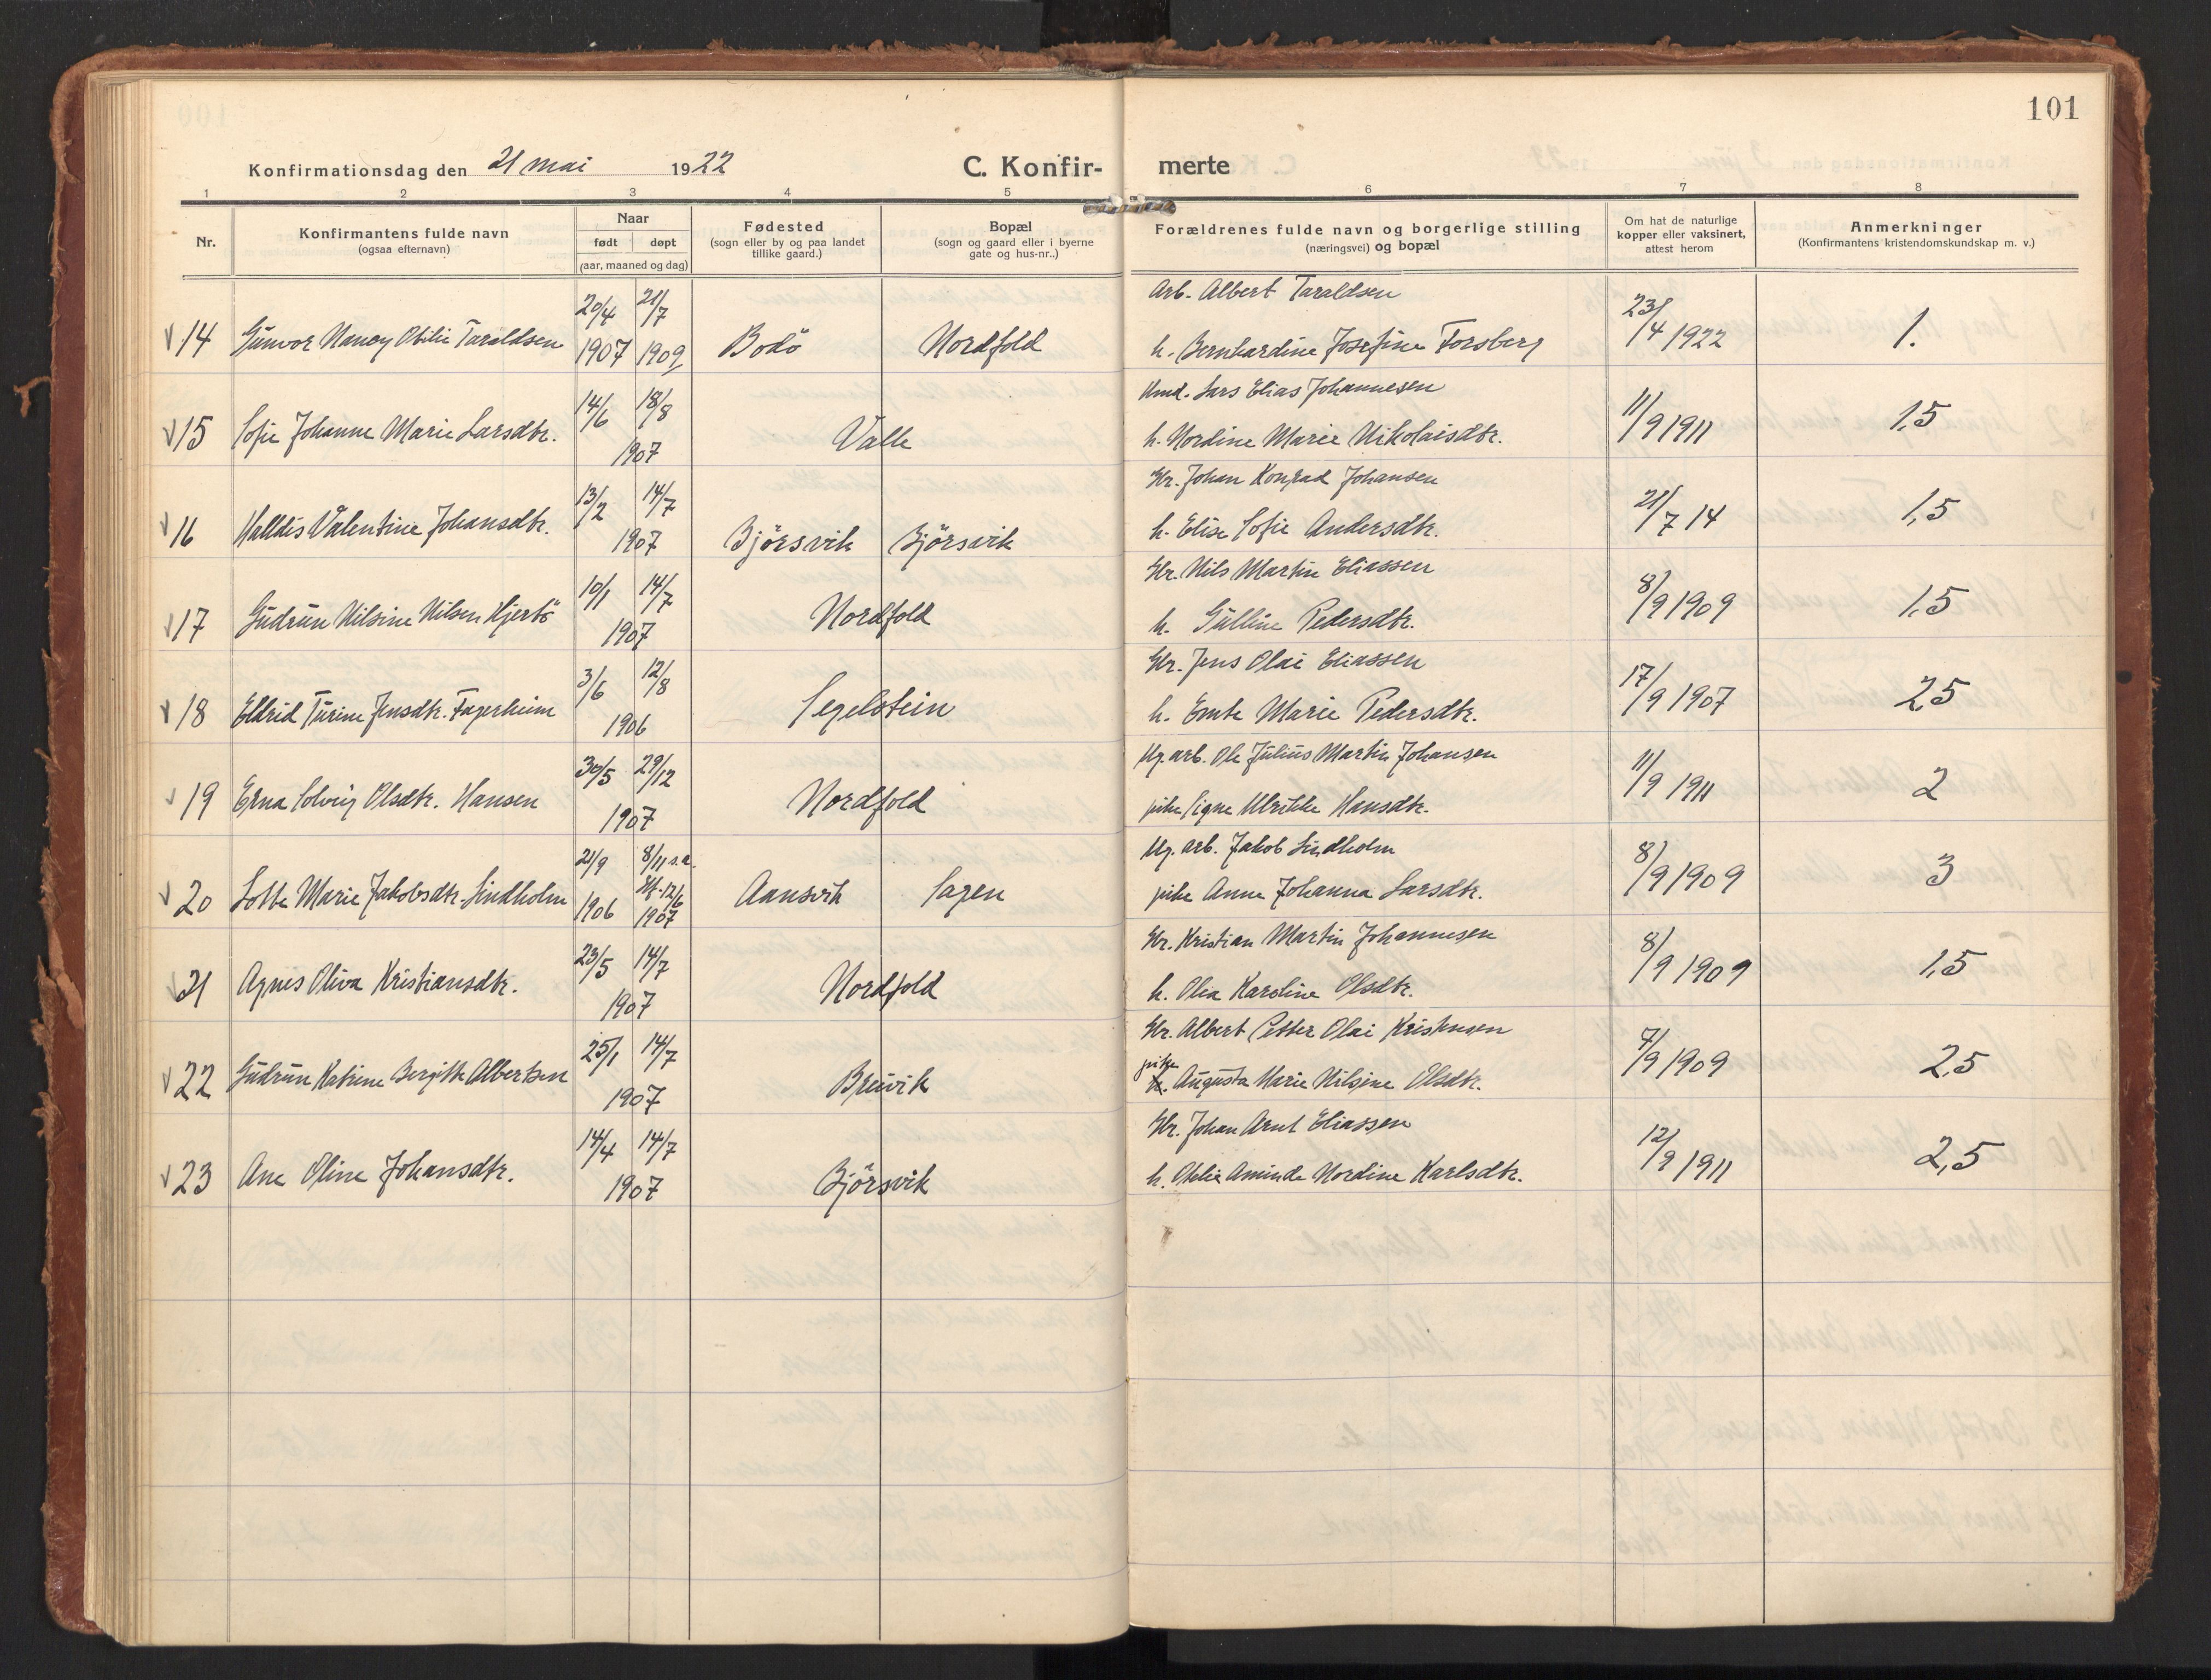 101
Konfirmationsdag den 21 mai 1922 C. Konfir- merte
1 2 3 4 5 6 7 8
Nr.
Konfirmantens fulde navn
(ogsaa efternavn)
Naar
født døpt
(aar, maaned og dag)
Fødested
(sogn eller by og paa landet
tillike gaard.)
Bopæl
(sogn og gaard eller i byerne
gate og hus-nr..)
Forældrenes fulde navn og borgerlige stilling
(næringsvei) og bopæl
Om hat de naturlige
kopper eller vaksinert,
attest herom
Anmerkninger
(Konfirmantens kristendomskundskap m. v.)
20/4 21/7 Arb. Albert Taraldsen 23/4 1922
14 Gunvor Nancy Otilie Taraldsen 1907 1909 Bodö Nordfold h. Bernhardine Josefine Forsberg 1.
14/6 18/8 Kmd. Lars Elias Johannesen
15 Sofie Johanne Marie Larsdtr. 1907 Valle h. Nordine Marie Nikolaisdtr. 11/9 1911 1,5
13/2 14/7 Gbr. Johan Konrad Johansen
16 Halldis Valentine Johansdtr. 1907 Björsvik Björsvik h. Elise Sofie Andersdtr. 21/7 14 1,5
10/1 14/7 Gbr. Nils Martin Eliassen
17 Gudrun Nilsine Nilsen Hjertö 1907 Nordfold h. Gulline Pedersdtr. 8/9 1909 1,5
3/6 12/8 Gbr. Jens Olai Eliassen
18 Eldrid Turine Jensdtr. Fagerheim 1906 Segelstein h. Emte Marie Pedersdtr. 17/9 1907 2,5
30/5 29/12 Ug. arb. Ole Julius Martin Johansen
19 Erna Solveig Olsdtr. Hansen 1907 Nordfold pike Signe Ulrikke Hansdtr. 11/9 1911 2
21/9 8/11 s.a. Ug. arb. Jakob Lindholm
20 Lotte Marie Jakobsdtr. Lindholm 1906 12/6 1907 Aansvik Sagen pike Anne Johanna Larsdtr. 8/9 1909 3
23/5 14/7 Gbr. Kristian Martin Johannesen
21 Agnes Oliva Kristiansdtr. 1907 Nordfold h. Olea Karoline Olsdtr. 8/9 1909 1,5
25/1 14/7 Gbr. Albert Petter Olai Kristensen
pike
22 Gudrun Katrine Bergitte Albertsen 1907 Breivik h. Augusta Marie Nilsine Olsdtr. 7/9 1909 2,5
14/4 14/7 Gbr. Johan Arnt Eliassen
23 Ane Oline Johansdtr. 1907 Björsvik h. Otelie Aminde Nordine Karlsdtr. 12/9 1911 2,5